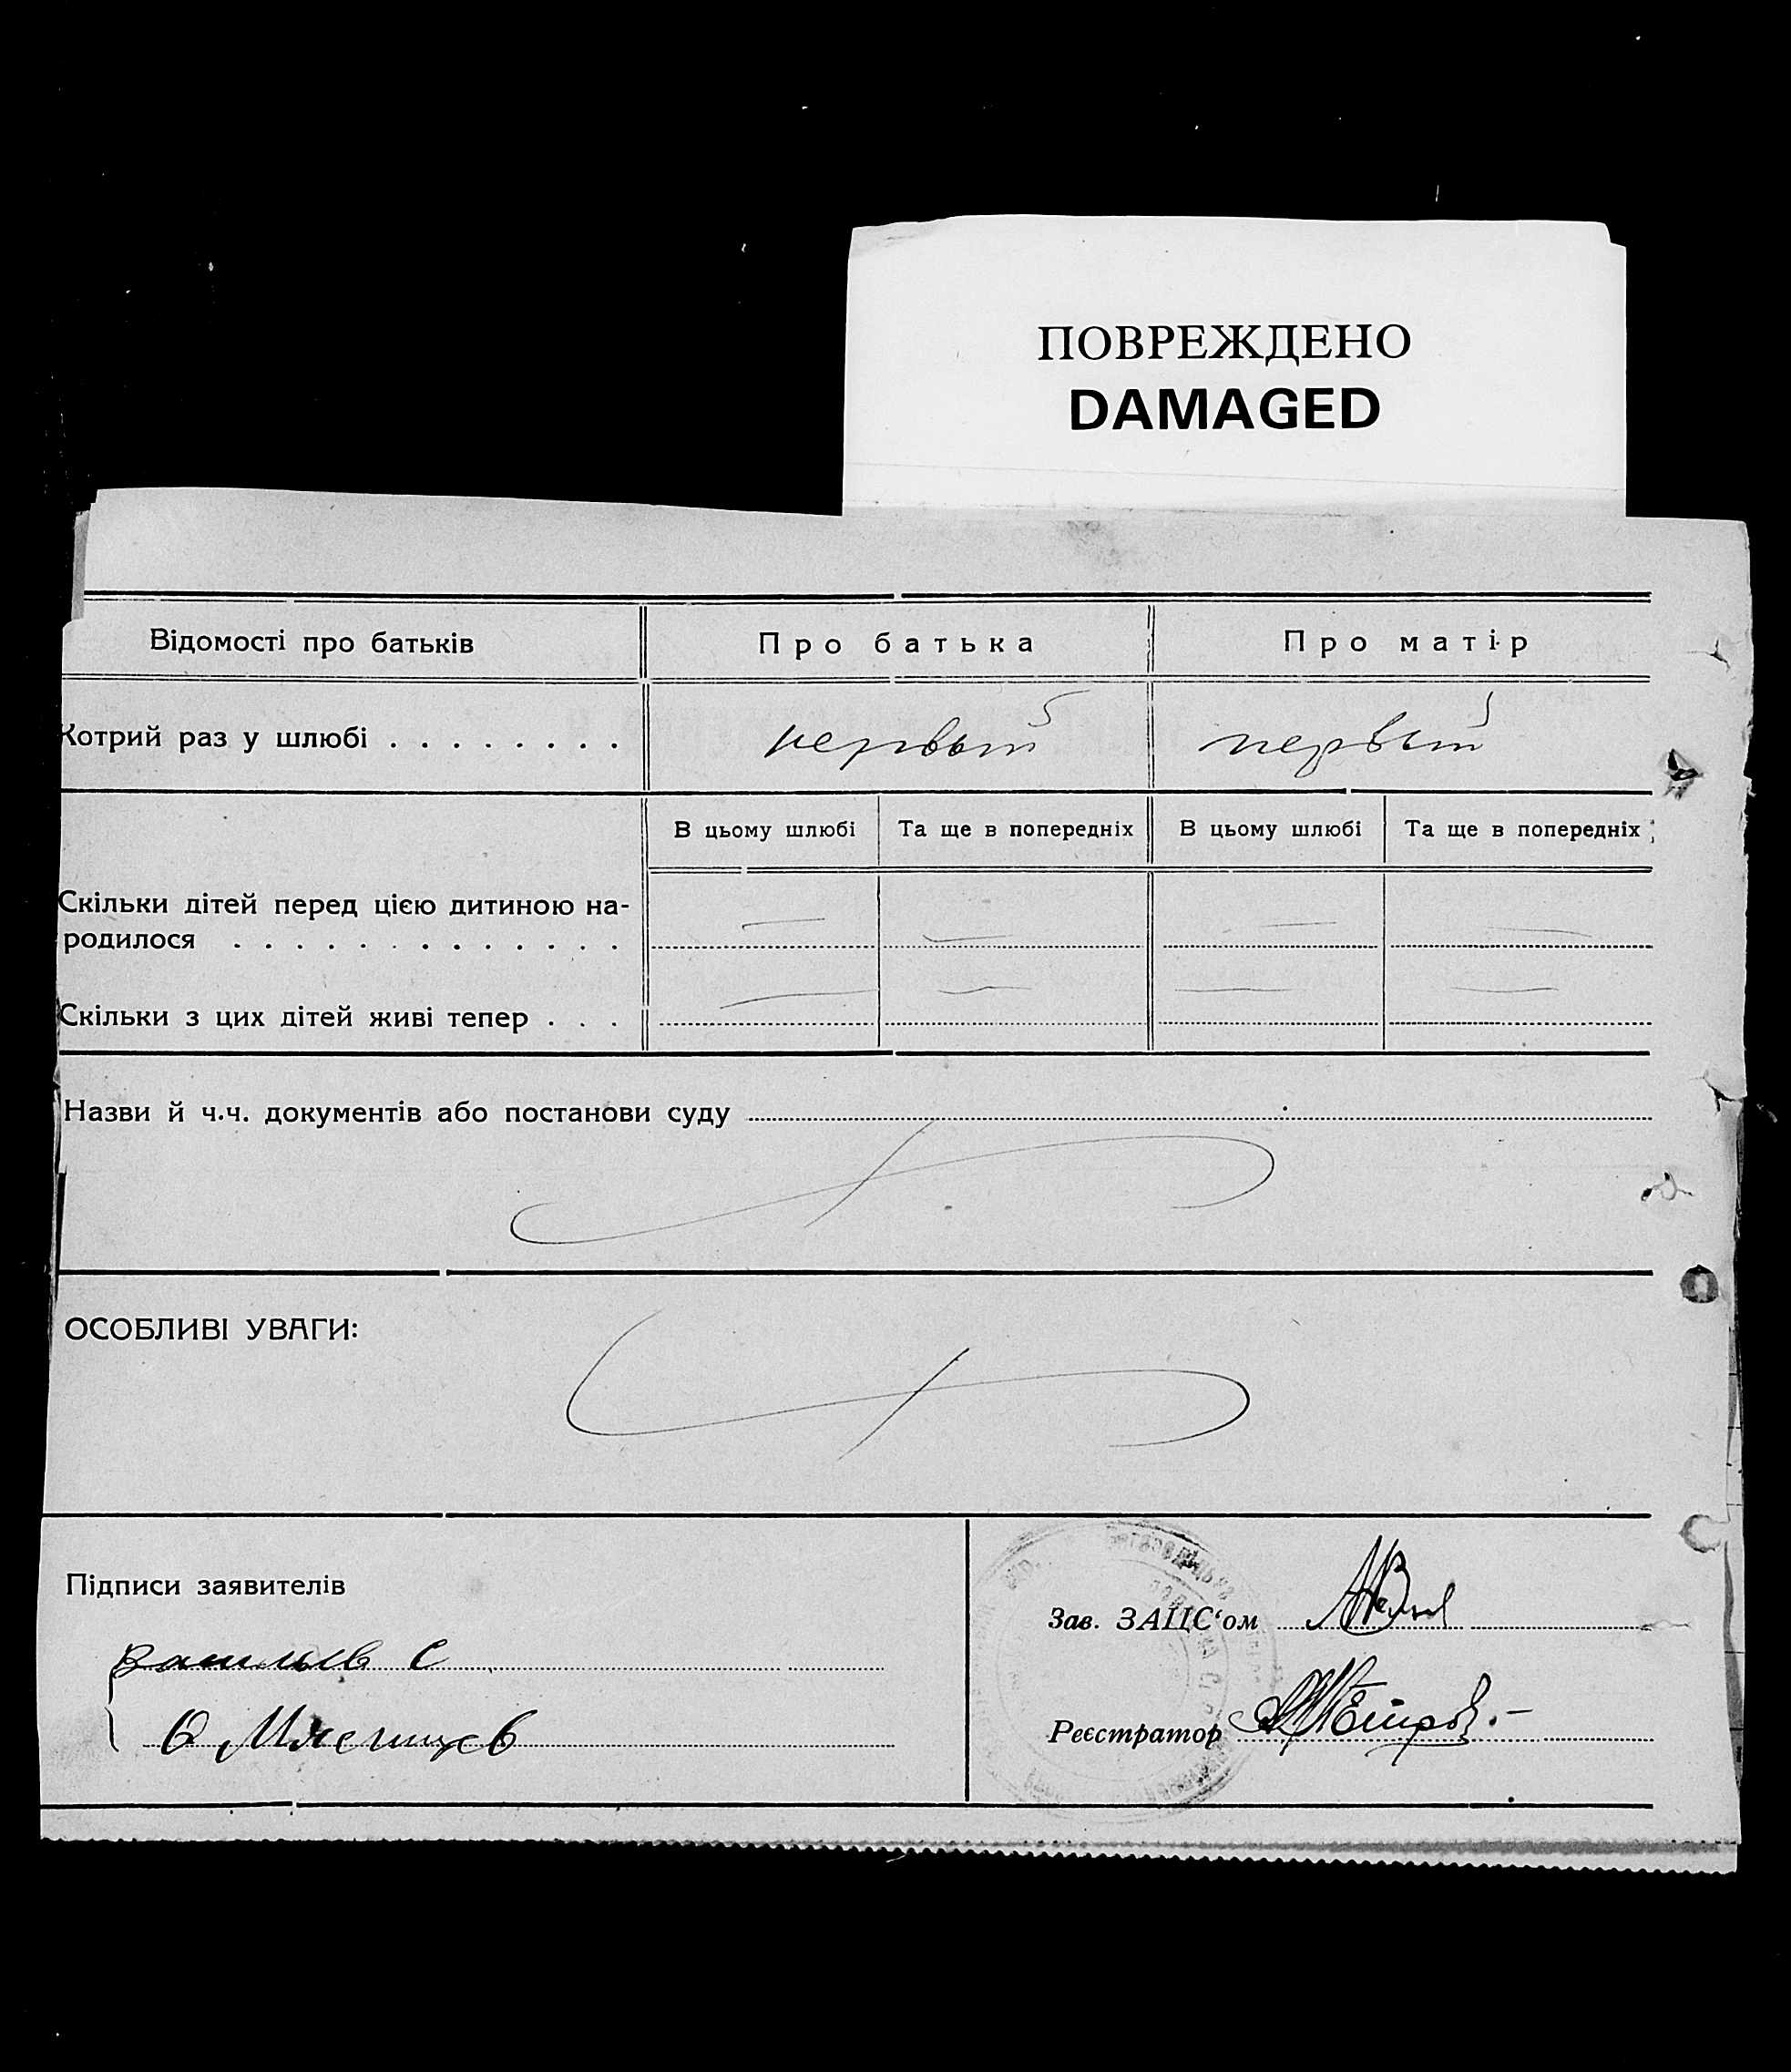 ПОВРЕЖДЕНО
DAMAGED
Відомості про батьків
Про батька
Про матір
Котрий раз у шлюбі . . . . . . . .
первый
первый
В цьому шлюбі
Та ще в попередніх
В цьому шлюбі
Та ще в попередніх
Скільки дітей перед цією дитиною на-
родилося . . . . . . . . . . . . .
— — — —
Скільки з цих дітей живі тепер . . .
— — — —
Назви й ч.ч. документів або постанови суду
ОСОБЛИВІ УВАГИ:
Підписи заявителів
Зав. ЗАЦС‘ом
Реєстратор